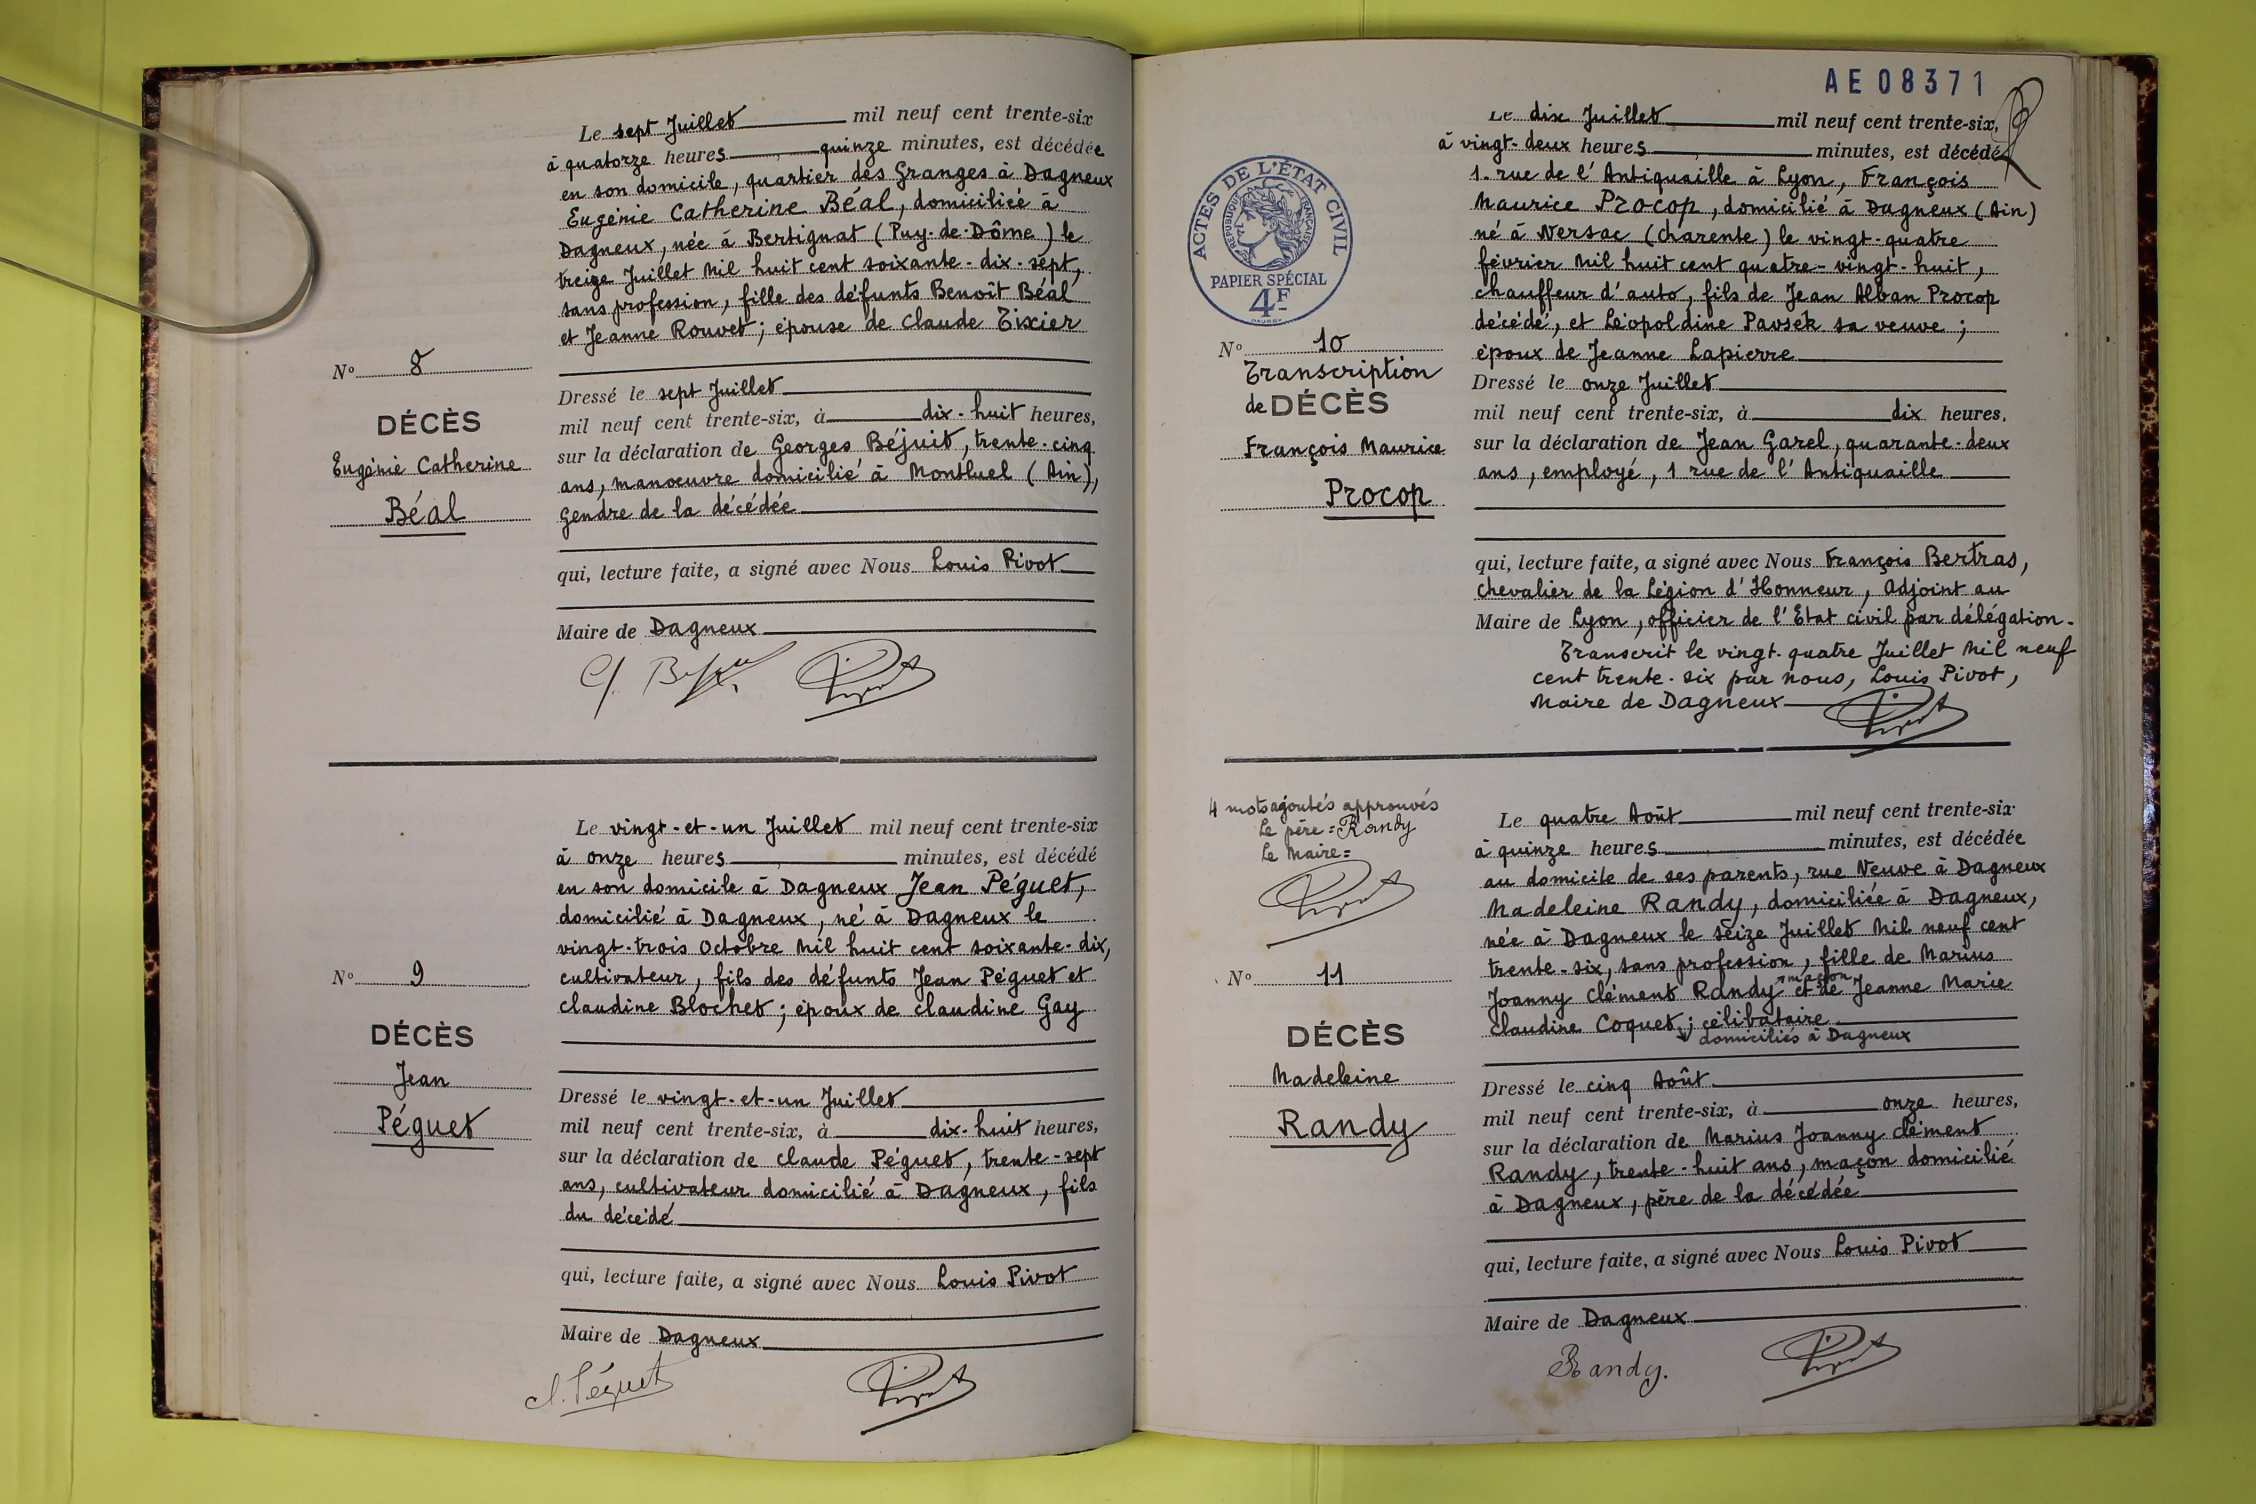 Le sept Juillet mil neuf cent trente-six
à quatorze heures, quinze minutes, est décédée
en son domicile, quartier des Granges à Dagneux
Eugénie Catherine Béal, domiciliée à
Dagneux, née à Bertignat (Puy-de-Dôme) le
treize Juillet Mil huit cent soixante-dix-sept,
sans profession, fille des défunts Benoît Béal
et Jeanne Rouvet; épouse de Claude Tixier
N° 8
DÉCÈS
Eugénie Catherine
Béal
Dressé le sept Juillet
mil neuf cent trente-six, à dix-huit heures,
sur la déclaration de Georges Béjuit, trente-cinq
ans, manoeuvre domicilié à Montluel (Ain),
gendre de la décédée
qui, lecture faite, a signé avec Nous Louis Pivot
Maire de Dagneux
Pivot
Le vingt-et-un Juillet mil neuf cent trente-six
à onze heures, minutes, est décédé
en son domicile à Dagneux Jean Péguet,
domicilié à Dagneux, né à Dagneux le
vingt-trois Octobre Mil huit cent soixante-dix,
cultivateur, fils des défunts Jean Péguet et
Claudine Blochet; époux de Claudine Gay
N° 9
DÉCÈS
Jean
Péguet
Dressé le vingt-et-un Juillet
mil neuf cent trente-six, à dix-huit heures,
sur la déclaration de Claude Péguet, trente-sept
ans, cultivateur domicilié à Dagneux, fils
du décédé
qui, lecture faite, a signé avec Nous Louis Pivot
Maire de Dagneux
cl. Péguet Pivot
AE08371
ACTES DE L'ÉTAT CIVIL
RÉPUBLIQUE FRANÇAISE
PAPIER SPÉCIAL
4F
Le dix Juillet mil neuf cent trente-six,
à vingt-deux heures, minutes, est décédé
1. rue de l'Antiquaille à Lyon, François
Maurice Procop, domicilié à Dagneux (Ain)
né à Nersac (Charente) le vingt-quatre
février Mil huit cent quatre-vingt-huit,
chauffeur d'auto, fils de Jean Alban Procop
décédé, et Léopoldine Pavsek sa veuve;
époux de Jeanne Lapierre
N° 10
Transcription
de DÉCÈS
François Maurice
Procop
Dressé le onze Juillet
mil neuf cent trente-six, à dix heures,
sur la déclaration de Jean Garel, quarante-deux
ans, employé, 1 rue de l'Antiquaille
qui, lecture faite, a signé avec Nous François Bertras,
Chevalier de la Légion d'Honneur, Adjoint au
Maire de Lyon, officier de l'Etat civil par délégation.
Transcrit le vingt-quatre Juillet Mil neuf
cent trente-six par Nous, Louis Pivot,
Maire de Dagneux
Pivot
4 mots ajoutés approuvés
Le père = Randy
Le Maire =
Pivot
Le quatre Août mil neuf cent trente-six
à quinze heures, minutes, est décédée
au domicile de ses parents, rue Neuve à Dagneux
Madeleine Randy, domiciliée à Dagneux,
née à Dagneux le seize Juillet Mil neuf cent
trente-six, sans profession, fille de Marius
maçon
Joanny Clément Randy et de Jeanne Marie
Claudine Coquet; célibataire
domiciliés à Dagneux
N° 11
DÉCÈS
Madeleine
Randy
Dressé le cinq Août
mil neuf cent trente-six, à onze heures,
sur la déclaration de Marius Joanny Clément
Randy, trente-huit ans, maçon domicilié
à Dagneux, père de la décédée
qui, lecture faite, a signé avec Nous Louis Pivot
Maire de Dagneux
Randy. Pivot